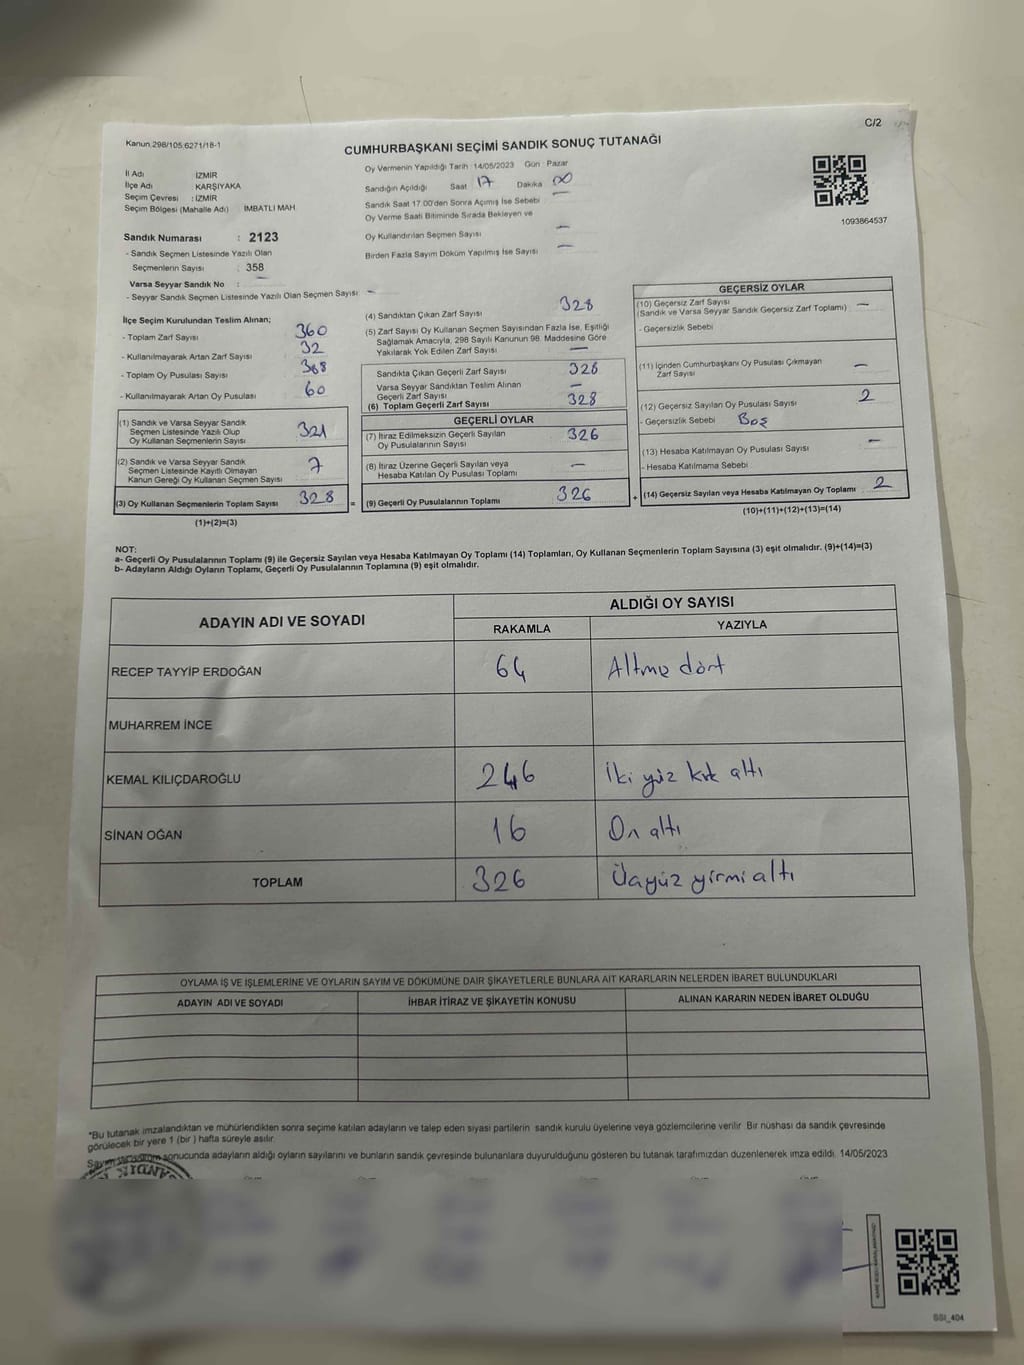 C/2
Kanun 298/105,6271/18-1
CUMHURBAŞKANI SEÇİMİ SANDIK SONUÇ TUTANAĞI
İl Adı İZMİR
İlçe Adı KARŞIYAKA
Seçim Çevresi : İZMİR
Seçim Bölgesi (Mahalle Adı) İMBATLI MAH.
Sandık Numarası : 2123
- Sandık Seçmen Listesinde Yazılı Olan
Seçmenlerin Sayısı : 358
Varsa Seyyar Sandık No : —
- Seyyar Sandık Seçmen Listesinde Yazılı Olan Seçmen Sayısı —
Oy Vermenin Yapıldığı Tarih 14/05/2023 Gün : Pazar
Sandığın Açıldığı Saat 17 Dakika 00
Sandık Saat 17.00'den Sonra Açılmış İse Sebebi —
Oy Verme Saati Bitiminde Sırada Bekleyen ve
Oy Kullandırılan Seçmen Sayısı —
Birden Fazla Sayım Döküm Yapılmış İse Sayısı —
1093864537
İlçe Seçim Kurulundan Teslim Alınan;
- Toplam Zarf Sayısı 360
- Kullanılmayarak Artan Zarf Sayısı 32
- Toplam Oy Pusulası Sayısı 368
- Kullanılmayarak Artan Oy Pusulası 60
(1) Sandık ve Varsa Seyyar Sandık
Seçmen Listesinde Yazılı Olup
Oy Kullanan Seçmenlerin Sayısı 321
(2) Sandık ve Varsa Seyyar Sandık
Seçmen Listesinde Kayıtlı Olmayan
Kanun Gereği Oy Kullanan Seçmen Sayısı 7
(3) Oy Kullanan Seçmenlerin Toplam Sayısı 328 =
(1)+(2)=(3)
(4) Sandıktan Çıkan Zarf Sayısı 328
(5) Zarf Sayısı Oy Kullanan Seçmen Sayısından Fazla İse, Eşitliği
Sağlamak Amacıyla, 298 Sayılı Kanunun 98. Maddesine Göre
Yakılarak Yok Edilen Zarf Sayısı —
Sandıkta Çıkan Geçerli Zarf Sayısı 328
Varsa Seyyar Sandıktan Teslim Alınan
Geçerli Zarf Sayısı —
(6) Toplam Geçerli Zarf Sayısı 328
GEÇERLİ OYLAR
(7) İtiraz Edilmeksizin Geçerli Sayılan
Oy Pusulalarının Sayısı 326
(8) İtiraz Üzerine Geçerli Sayılan veya
Hesaba Katılan Oy Pusulası Toplamı —
(9) Geçerli Oy Pusulalarının Toplamı 326 +
GEÇERSİZ OYLAR
(10) Geçersiz Zarf Sayısı
(Sandık ve Varsa Seyyar Sandık Geçersiz Zarf Toplamı) —
- Geçersizlik Sebebi
(11) İçinden Cumhurbaşkanı Oy Pusulası Çıkmayan
Zarf Sayısı —
(12) Geçersiz Sayılan Oy Pusulası Sayısı 2
- Geçersizlik Sebebi Boş
(13) Hesaba Katılmayan Oy Pusulası Sayısı —
- Hesaba Katılmama Sebebi
(14) Geçersiz Sayılan veya Hesaba Katılmayan Oy Toplamı 2
(10)+(11)+(12)+(13)=(14)
NOT:
a- Geçerli Oy Pusulalarının Toplamı (9) ile Geçersiz Sayılan veya Hesaba Katılmayan Oy Toplamı (14) Toplamları, Oy Kullanan Seçmenlerin Toplam Sayısına (3) eşit olmalıdır. (9)+(14)=(3)
b- Adayların Aldığı Oyların Toplamı, Geçerli Oy Pusulalarının Toplamına (9) eşit olmalıdır.
ADAYIN ADI VE SOYADI
ALDIĞI OY SAYISI
RAKAMLA YAZIYLA
RECEP TAYYİP ERDOĞAN 64 Altmış dört
MUHARREM İNCE
KEMAL KILIÇDAROĞLU 246 İki yüz kırk altı
SİNAN OĞAN 16 On altı
TOPLAM 326 Üçyüz yirmi altı
OYLAMA İŞ VE İŞLEMLERİNE VE OYLARIN SAYIM VE DÖKÜMÜNE DAİR ŞİKAYETLERLE BUNLARA AİT KARARLARIN NELERDEN İBARET BULUNDUKLARI
ADAYIN ADI VE SOYADI İHBAR İTİRAZ VE ŞİKAYETİN KONUSU ALINAN KARARIN NEDEN İBARET OLDUĞU
*Bu tutanak imzalandıktan ve mühürlendikten sonra seçime katılan adayların ve talep eden siyasi partilerin sandık kurulu üyelerine veya gözlemcilerine verilir. Bir nüshası da sandık çevresinde
görülecek bir yere 1 (bir) hafta süreyle asılır.
Sayım sonucunda adayların aldığı oyların sayılarını ve bunların sandık çevresinde bulunanlara duyurulduğunu gösteren bu tutanak tarafımızdan düzenlenerek imza edildi. 14/05/2023
SSI_404